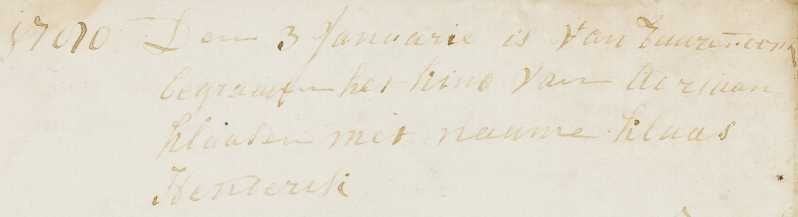 Den 3 Januarie is van
begraaven het kind van Adriaan
klaasen met naame klaas
Henderik